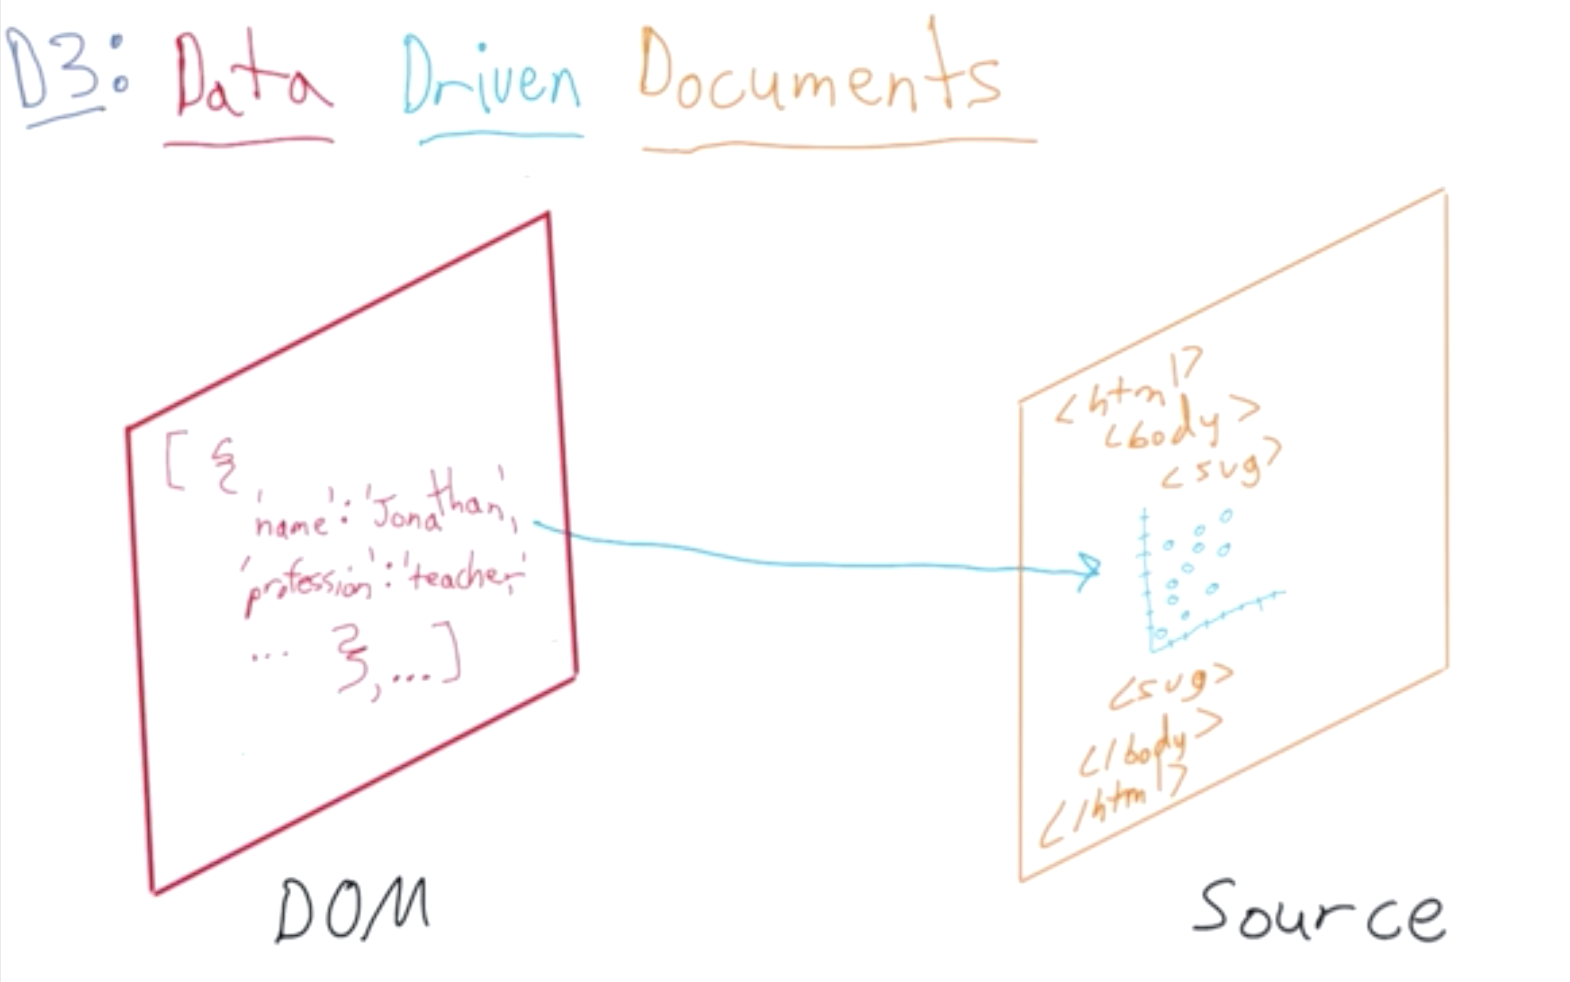 D3: Data Driven Documents
[ {
'name': 'Jonathan',
'profession': 'teacher',
... }, ... ]
<html>
<body>
<svg>
<svg>
</body>
</html>
DOM
Source